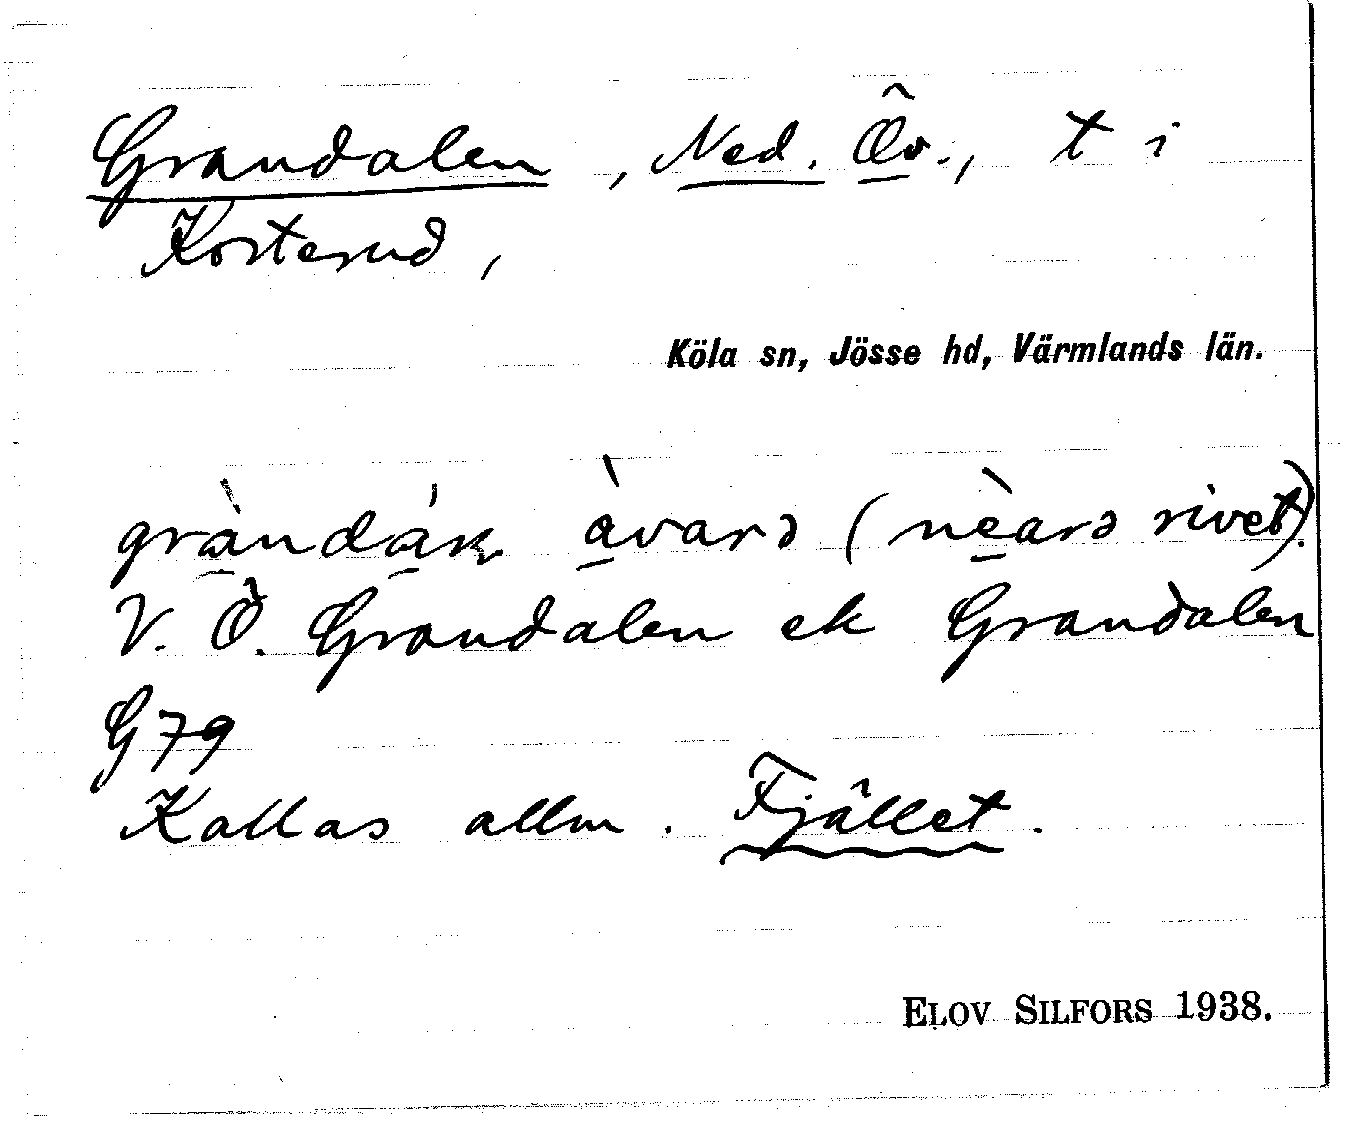 Grandalen, Ned. Öv., t i
Kosterud,
Köla sn, Jösse hd, Värmlands län.
gràndáṉ àvarə (nèarə rivet).
V. Ö. Grandalen ek Grandalen
G 79
Kallas allm. Fjället.
ELOV SILFORS 1938.